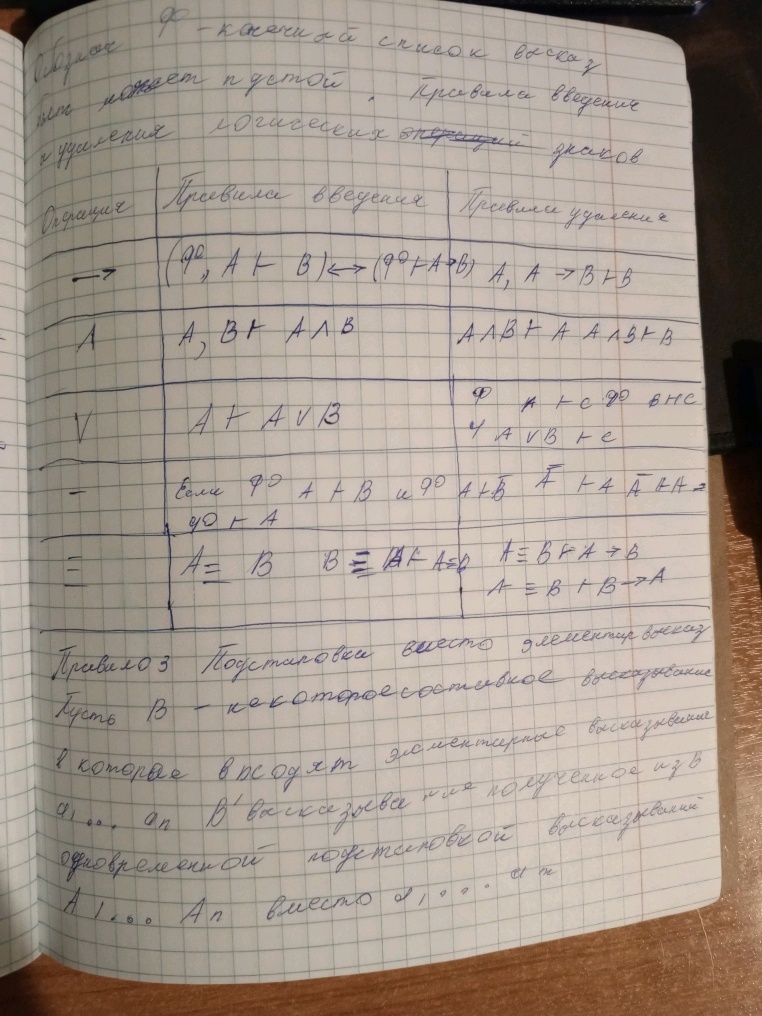 Обознач Φ – конечный список высказ
быт может пустой. Правила введения
и удаления логических операций знаков
Операция Правила введения Правила удаления
→ (Φ, A ⊢ B) ↔ (Φ ⊢ A → B) A, A → B ⊢ B
Λ A, B ⊢ A ∧ B A ∧ B ⊢ A A ∧ B ⊢ B
V A ⊢ A ∨ B Φ A ⊢ C Φ B ⊢ C
A ∨ B ⊢ C
– Если Φ A ⊢ B и Φ A ⊢ B̅ A̿ ⊢ A
Φ ⊢ A
≡ A ≡ B B ≡ A ⊢ A ≡ B A ≡ B ⊢ A → B
A ≡ B ⊢ B → A
Правило 3 Подстановки вместо элементар высказ
Пусть B – некоторое составное высказывание
в которые входят элементарные высказывание
a, ... an B' высказывание полученное из B
одновременной подстановкой высказываний
A1 ... An вместо a, ... an